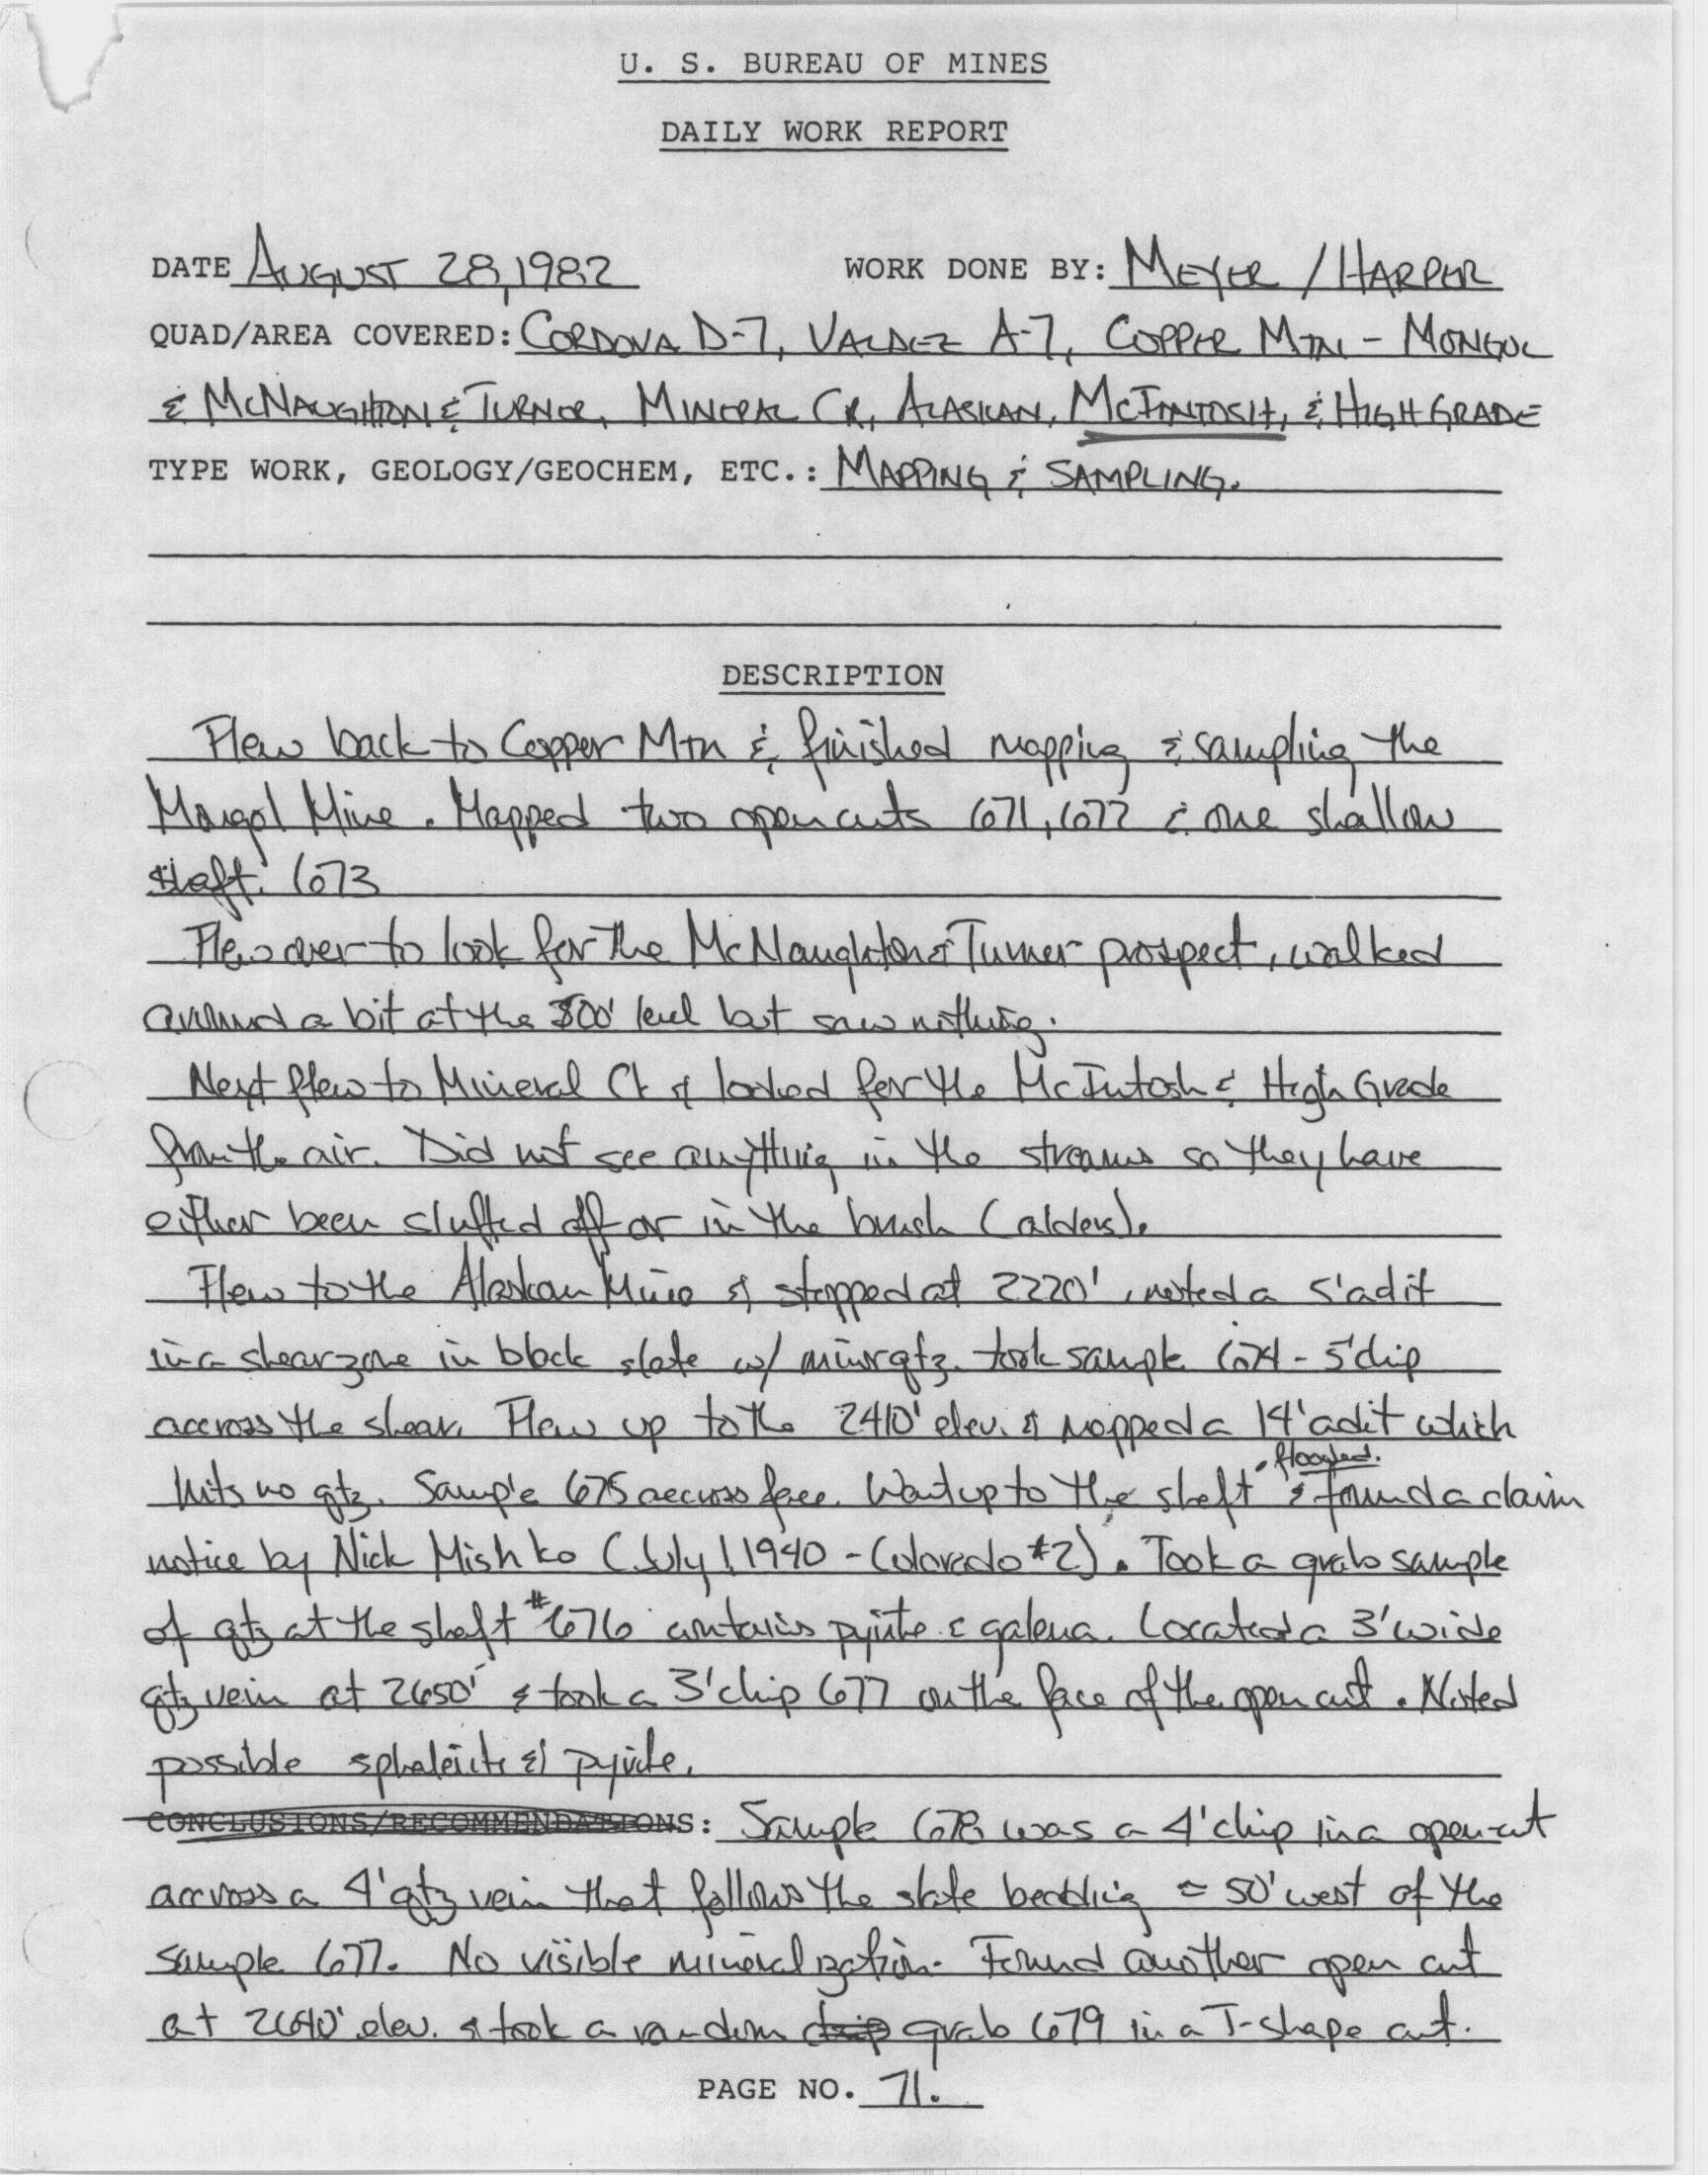 U. S. BUREAU OF MINES
DAILY WORK REPORT
DATE AUGUST 28, 1982 WORK DONE BY: MEYER / HARPER
QUAD/AREA COVERED: CORDOVA D-7, VALDEZ A-7, COPPER MTN - MONGUL
& MCNAUGHTON & TURNER, MINERAL CR, ALASKAN, MCINTOSH, & HIGH GRADE
TYPE WORK, GEOLOGY/GEOCHEM, ETC.: MAPPING & SAMPLING.
DESCRIPTION
Flew back to Copper Mtn & finished mapping & sampling the
Mongol Mine. Mapped two open cuts 671, 672 & one shallow
shaft. 673
Flew over to look for the McNaughton & Turner prospect, walked
around a bit at the 800' level but saw nothing.
Next flew to Mineral Ck & looked for the McIntosh & High Grade
from the air. Did not see anything in the streams so they have
either been sluffed off or in the brush (alders).
Flew to the Alaskan Mine & stopped at 2220', noted a 5' adit
in a shear zone in black slate w/ minor qtz. took sample 674 - 5' chip
accross the shear. Flew up to the 2410' elev. & mapped a 14' adit which
hits no qtz. Sample 675 accross face. Went up to the shaft • flooded. & found a claim
notice by Nick Mishko (July 1, 1940 - Colorado #2). Took a grab sample
of qtz at the shaft #676 contains pyrite & galena. Located a 3' wide
qtz vein at 2650' & took a 3' chip 677 on the face of the open cut. Noted
possible sphalerite & pyrite.
CONCLUSIONS/RECOMMENDATIONS: Sample 678 was a 4' chip in a open cut
accross a 4' qtz vein that follows the slate bedding ≈ 50' west of the
sample 677. No visible mineralization. Found another open cut
at 2640' elev. & took a random chip grab 679 in a T-shape cut.
PAGE NO. 71.